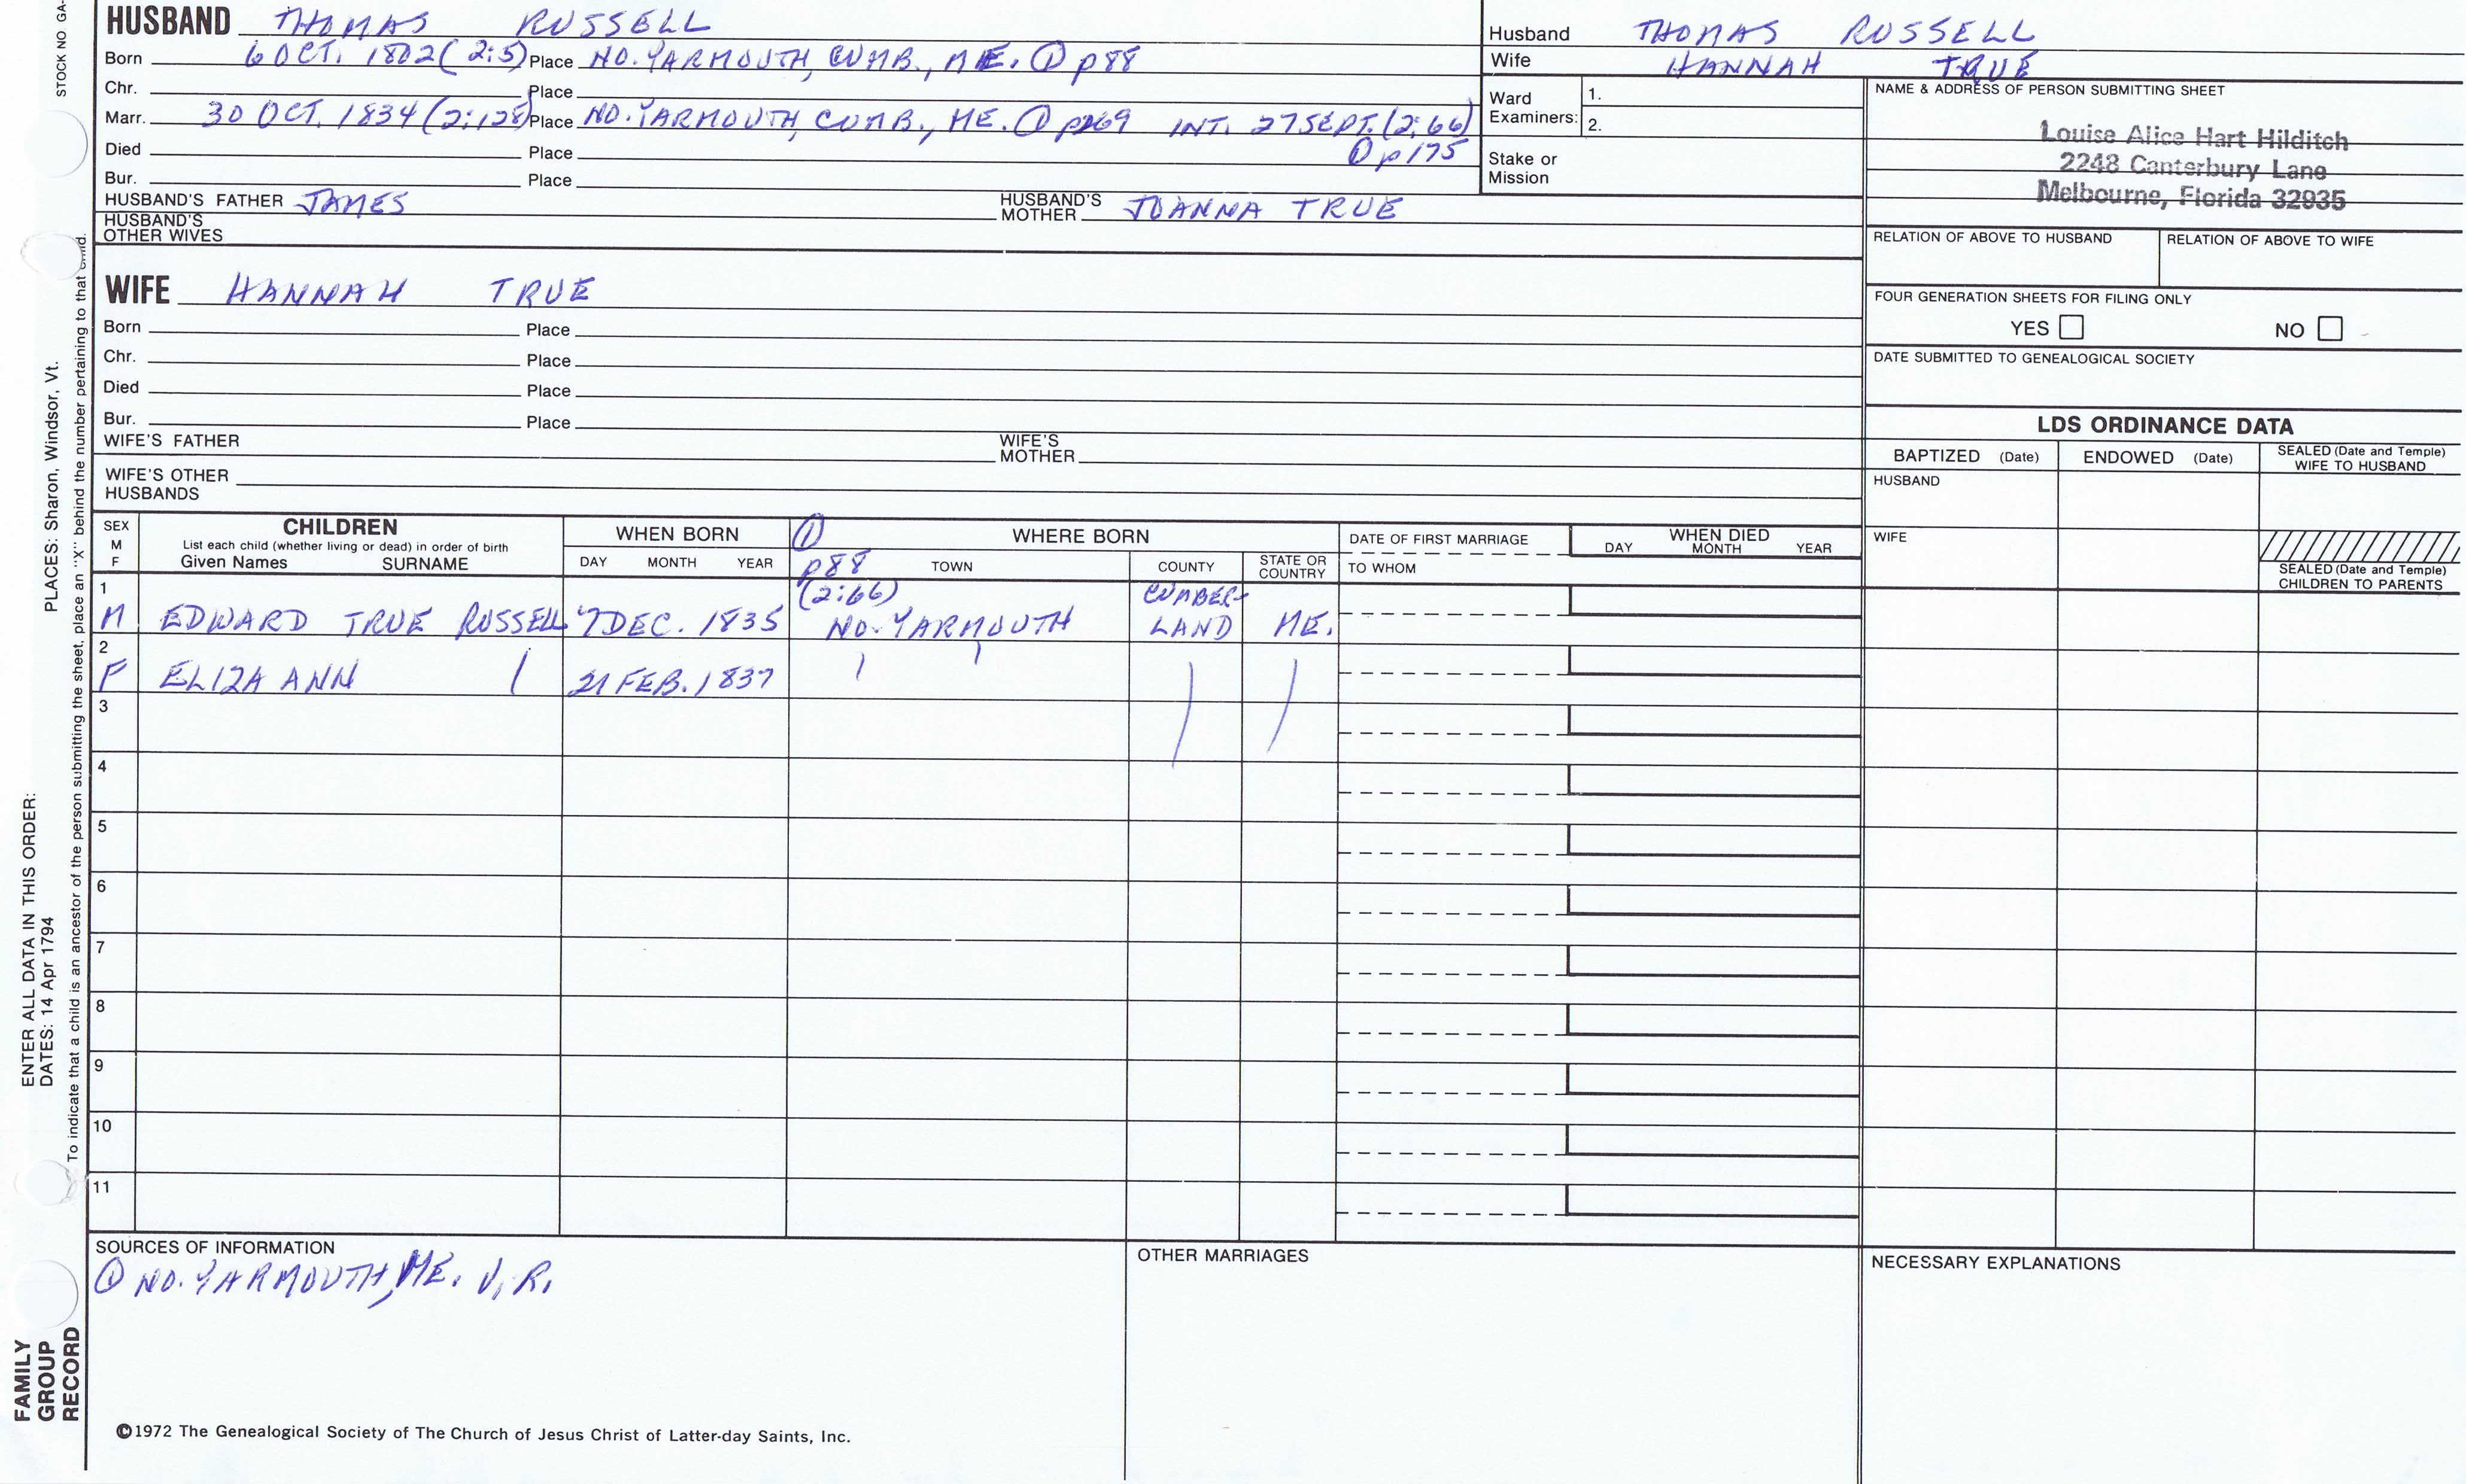 STOCK NO GA-
HUSBAND THOMAS RUSSELL
Born 6 OCT. 1802 (2:5) Place NO. YARMOUTH, CUMB., ME. ① p88
Chr. Place
Marr. 30 OCT. 1834 (2:128) Place NO. YARMOUTH, CUMB., ME. ① INT. 27 SEPT. (2:66)
① p175
Died Place
Bur. Place
HUSBAND'S FATHER JAMES HUSBAND'S MOTHER JOANNA TRUE
HUSBAND'S
OTHER WIVES
Husband THOMAS RUSSELL
Wife HANNAH TRUE
Ward
Examiners:
1.
2.
Stake or
Mission
NAME & ADDRESS OF PERSON SUBMITTING SHEET
Louise Alice Hart Hilditch
2248 Canterbury Lane
Melbourne, Florida 32935
RELATION OF ABOVE TO HUSBAND RELATION OF ABOVE TO WIFE
FOUR GENERATION SHEETS FOR FILING ONLY
YES NO
DATE SUBMITTED TO GENEALOGICAL SOCIETY
WIFE HANNAH TRUE
Born Place
Chr. Place
Died Place
Bur. Place
WIFE'S FATHER WIFE'S MOTHER
WIFE'S OTHER
HUSBANDS
LDS ORDINANCE DATA
BAPTIZED (Date) ENDOWED (Date) SEALED (Date and Temple) WIFE TO HUSBAND
HUSBAND
WIFE
SEALED (Date and Temple)
CHILDREN TO PARENTS
SEX
M
F
CHILDREN
List each child (whether living or dead) in order of birth
Given Names SURNAME
WHEN BORN
DAY MONTH YEAR
① p88 (2:66)
WHERE BORN
TOWN COUNTY STATE OR COUNTRY
DATE OF FIRST MARRIAGE
TO WHOM
WHEN DIED
DAY MONTH YEAR
1
M EDWARD TRUE RUSSELL 7 DEC. 1835 NO. YARMOUTH CUMBER-LAND ME.
2
F ELIZA ANN 21 FEB. 1837
3
4
5
6
7
8
9
10
11
SOURCES OF INFORMATION
① NO. YARMOUTH, ME. V.R.
OTHER MARRIAGES
NECESSARY EXPLANATIONS
©1972 The Genealogical Society of The Church of Jesus Christ of Latter-day Saints, Inc.
FAMILY
GROUP
RECORD
ENTER ALL DATA IN THIS ORDER:
DATES: 14 Apr 1794
PLACES: Sharon, Windsor, Vt.
To indicate that a child is an ancestor of the person submitting the sheet, place an "X" behind the number pertaining to that child.